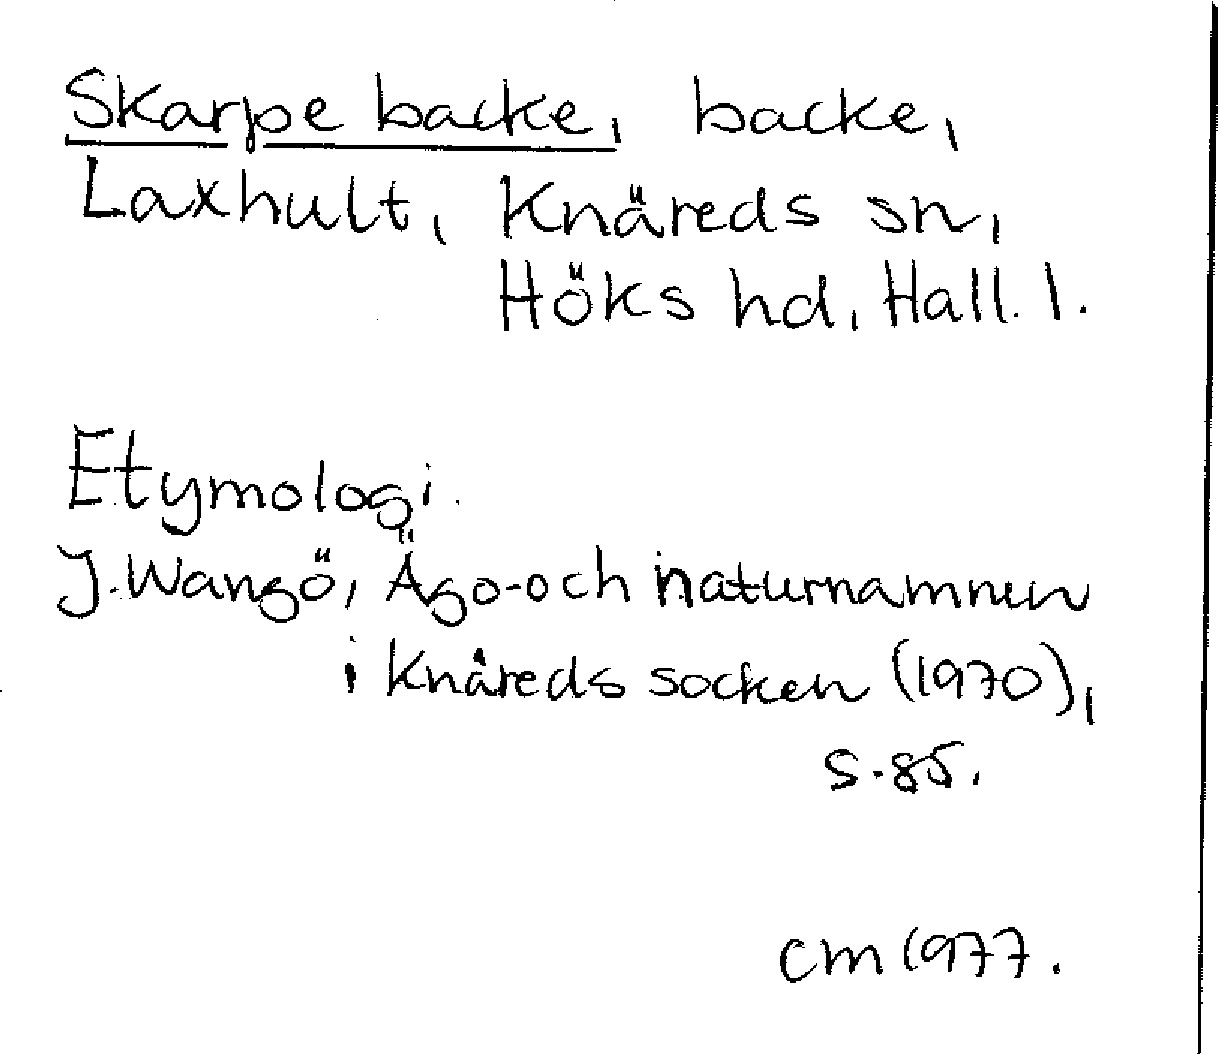 Skarpe backe, backe,
Laxhult, Knäreds sn,
Höks hd, Hall. l.
Etymologi.
J. Wangö, Ägo- och naturnamnen
i Knäreds socken (1970),
s. 85.
CM 1977.